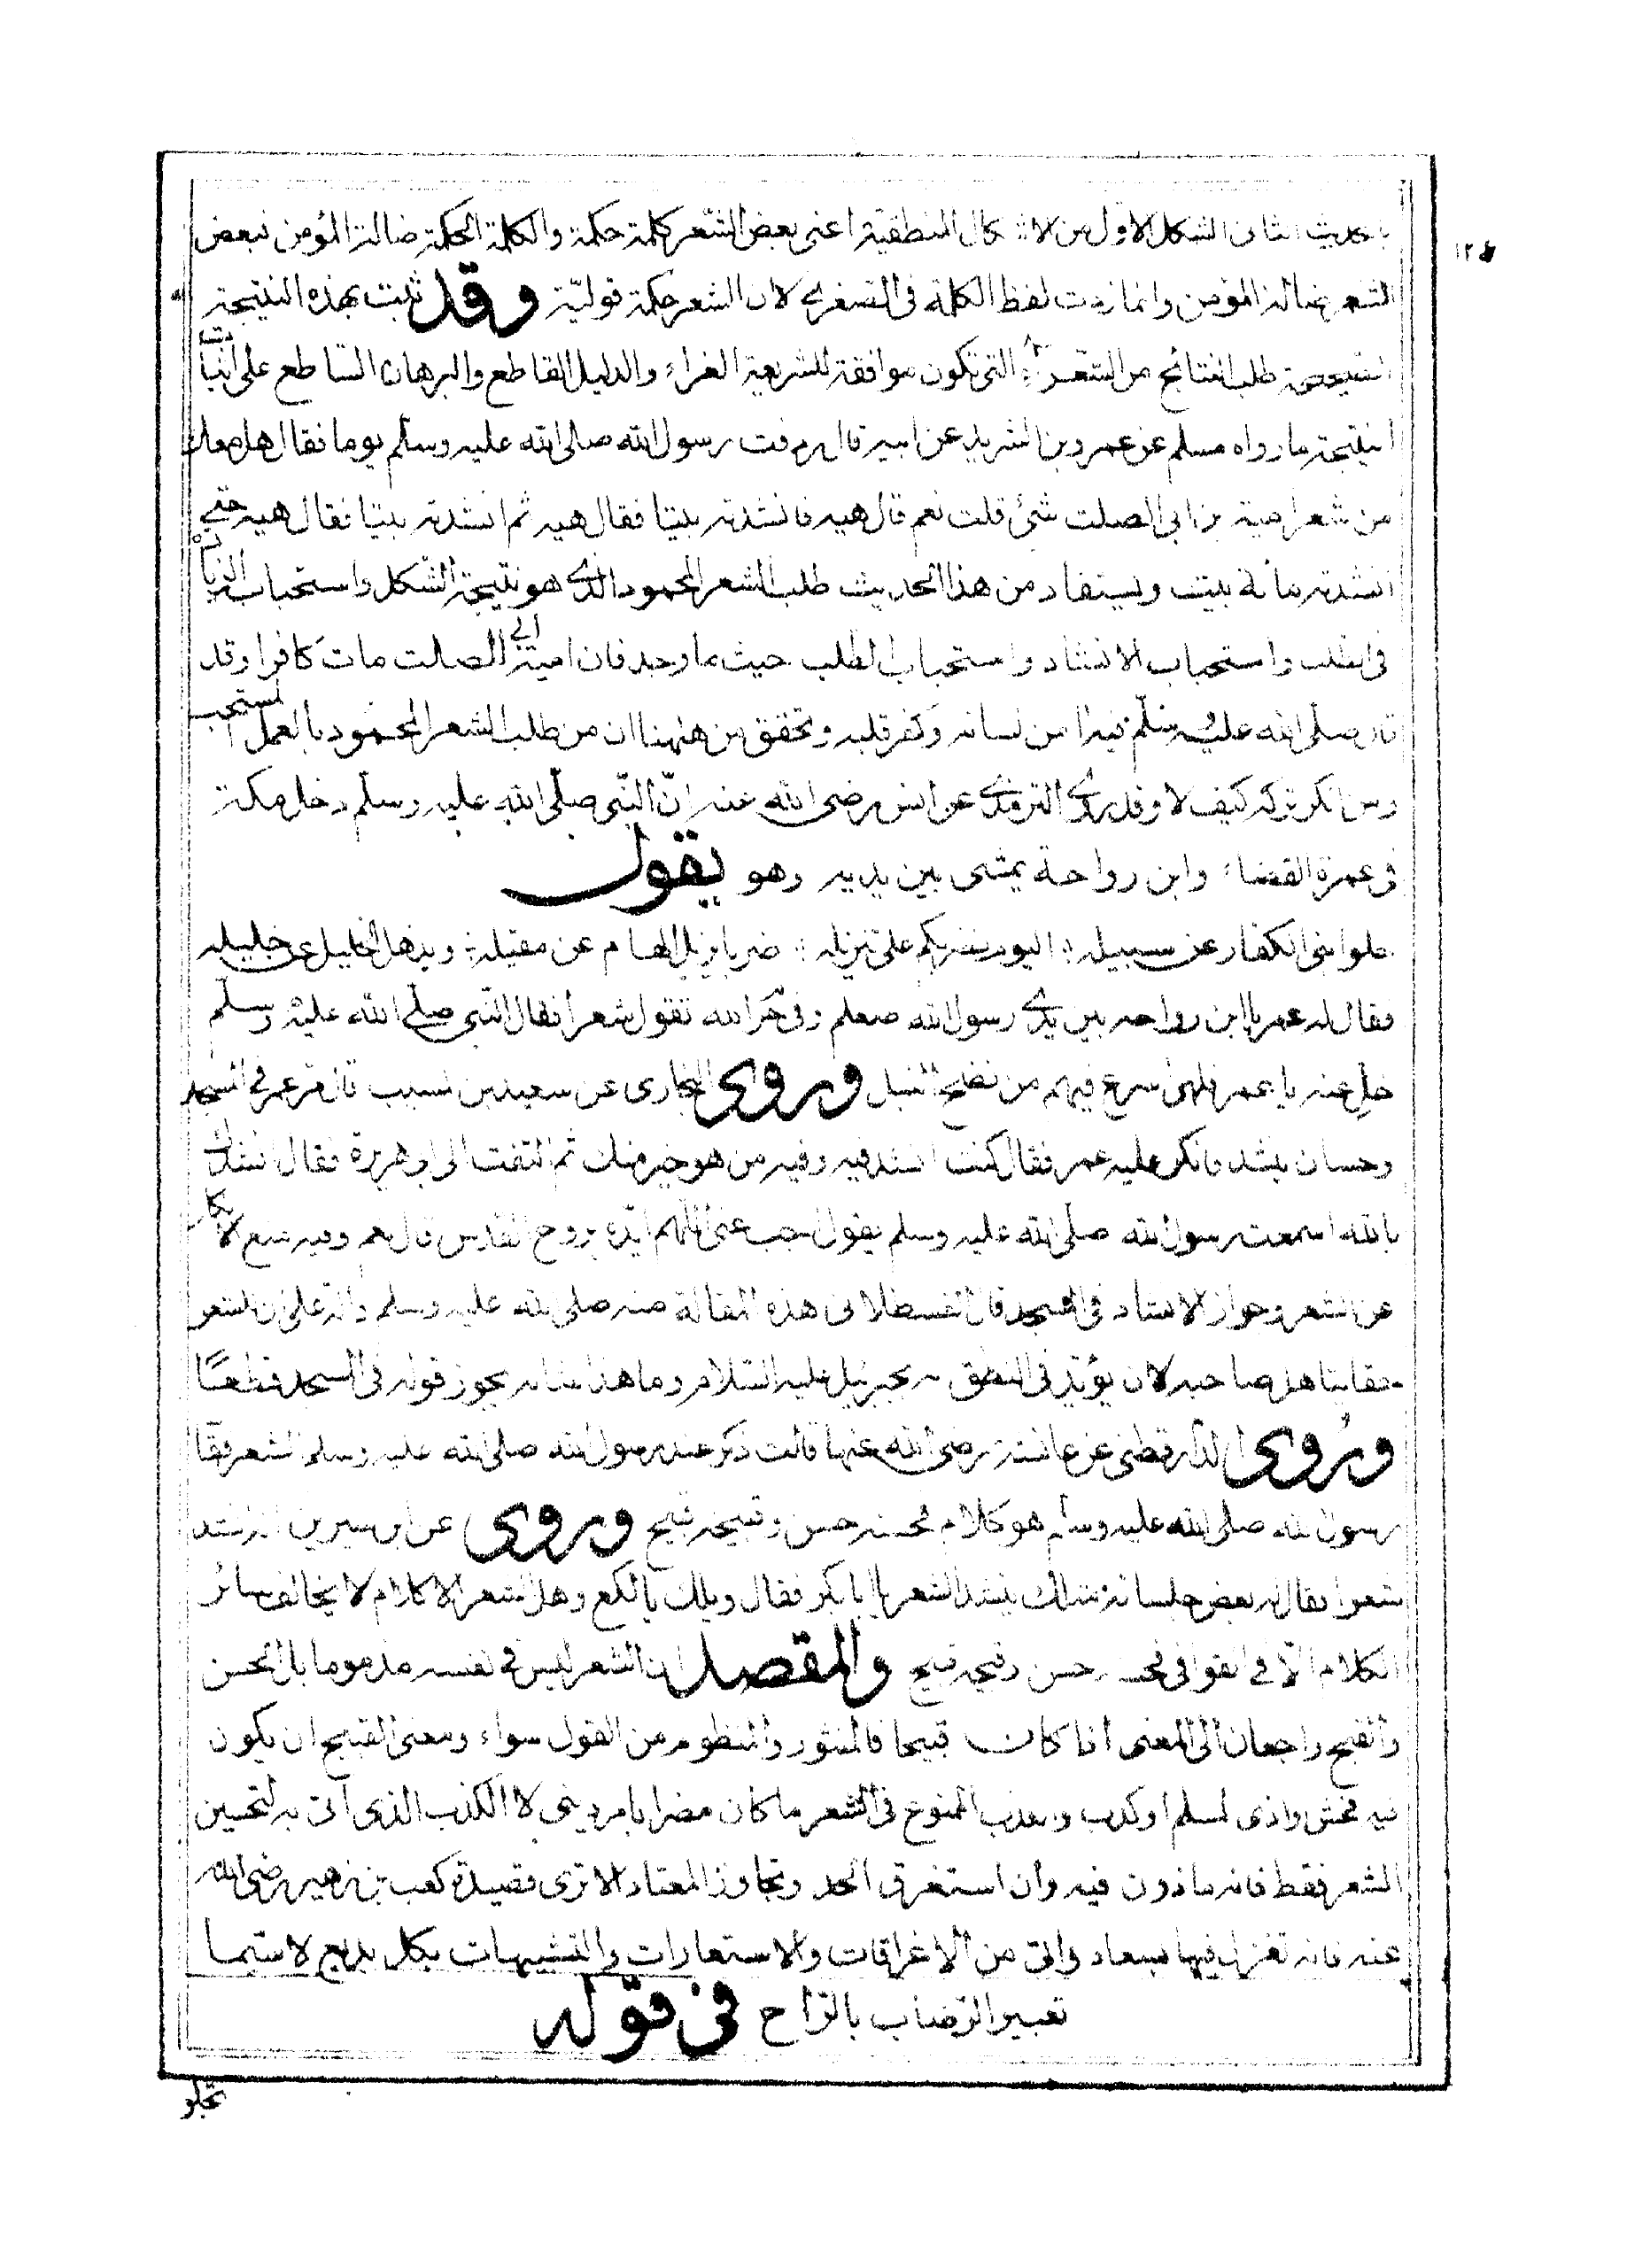 بالحديث الثانى الشكل الاول من الاشكال المنطقية اعنى بعض الشعر كلمة حكمة والكلمة الحكمة ضالة المؤمن فبعض
١٢٤
الشعر ضالة المؤمن وانما زيدت لفظ الكلمة فى الصغرى لان الشعر حكمة قولية وقد ثبت بهذه النتيجة
طلب النتائج من الشعراء التى تكون موافقة للشريعة الغراء والدليل القاطع والبرهان الساطع على اثبات
النتيجة ما رواه مسلم عن عمرو بن الشريد عن ابيه قال ردفت رسول الله صلى الله عليه وسلم يوما فقال هل معك
من شعر امية بن ابى الصلت شئ قلت نعم قال هيه فانشدته بيتا فقال هيه ثم انشدته بيتا فقال هيه حتى
انشدته مائة بيت ويستفاد من هذا الحديث طلب الشعر المحمود الذى هو نتيجة الشكل واستحباب الزيادة
فى الطلب واستحباب الانشاد واستحباب الطلب حيث ما وجد فان امية بن ابى الصلت مات كافرا وقد
قال صلى الله عليه وسلم فيه امن لسانه وكفر قلبه وتحقق من ههنا ان من طلب الشعر المحمود بالعمل المستحب
ومن انكر تركه كيف لا وقد روى الترمذى عن انس رضى الله عنه ان النبى صلى الله عليه وسلم دخل مكة
فى عمرة القضاء وابن رواحة يمشى بين يديه وهو يقول
خلوا بنى الكفار عن سبيله : اليوم نضربكم على تنزيله : ضربا يزيل الهام عن مقيله : ويذهل الخليل عن خليله
فقال له عمر يا ابن رواحه بين يدى رسول الله صلعم وفى حرم الله تقول شعرا فقال النبى صلى الله عليه وسلم
خل عنه يا عمر فلهى اسرع فيهم من نضح النبل وروى البخارى عن سعيد بن المسيب قال مر عمر فى المسجد
وحسان ينشد فانكر عليه عمر فقال كنت انشد فيه وفيه من هو خير منك ثم التفت الى ابو هريرة فقال انشدك
بالله اسمعت رسول الله صلى الله عليه وسلم يقول اجب عنى اللهم ايده بروح القدس قال نعم وفيه منع الانكار
عن الشعر وجواز الانشاد فى المسجد قال القسطلانى هذه المقالة منه صلى الله عليه وسلم دالة على ان للشعر
حقا يتاهل صاحبه لان يؤيد فى النطق به بجبرئيل عليه السلام وما هذا شانه يجوز قوله فى المسجد قطعا
وروى الدارقطنى عن عائشة رضى الله عنها قالت ذكر عند رسول الله صلى الله عليه وسلم الشعر فقال
رسول الله صلى الله عليه وسلم هو كلام فحسنه حسن وقبيحه قبيح وروى عن ابن سيرين انه انشد
شعرا فقال له بعض جلسائه مثلك ينشد الشعر يا ابا بكر فقال ويلك يا لكع وهل الشعر الا كلام لا يخالف سائر
الكلام الا فى القوافى فحسنه حسن وقبيحه قبيح والمقصد ان الشعر ليس فى نفسه مذموما بل الحسن
والقبح راجعان الى المعنى اذا كان قبيحا فالمنثور والمنظوم من القول سواء ومعنى القبيح ان يكون
فيه فحش واذى لمسلم او كذب والكذب الممنوع فى الشعر ما كان مضرا بامر دينى لا الكذب الذى اتى به لتحسين
الشعر فقط فانه ماذون فيه وان استغرق الحد وتجاوز المعتاد الا ترى قصيدة كعب بن زهير رضى الله
عنه فانه تغزل فيها بسعاد واتى من الاغراقات والاستعارات والتشبيهات بكل بديع لا سيما
تعبير الرضاب بالراح فى قوله
تجلو